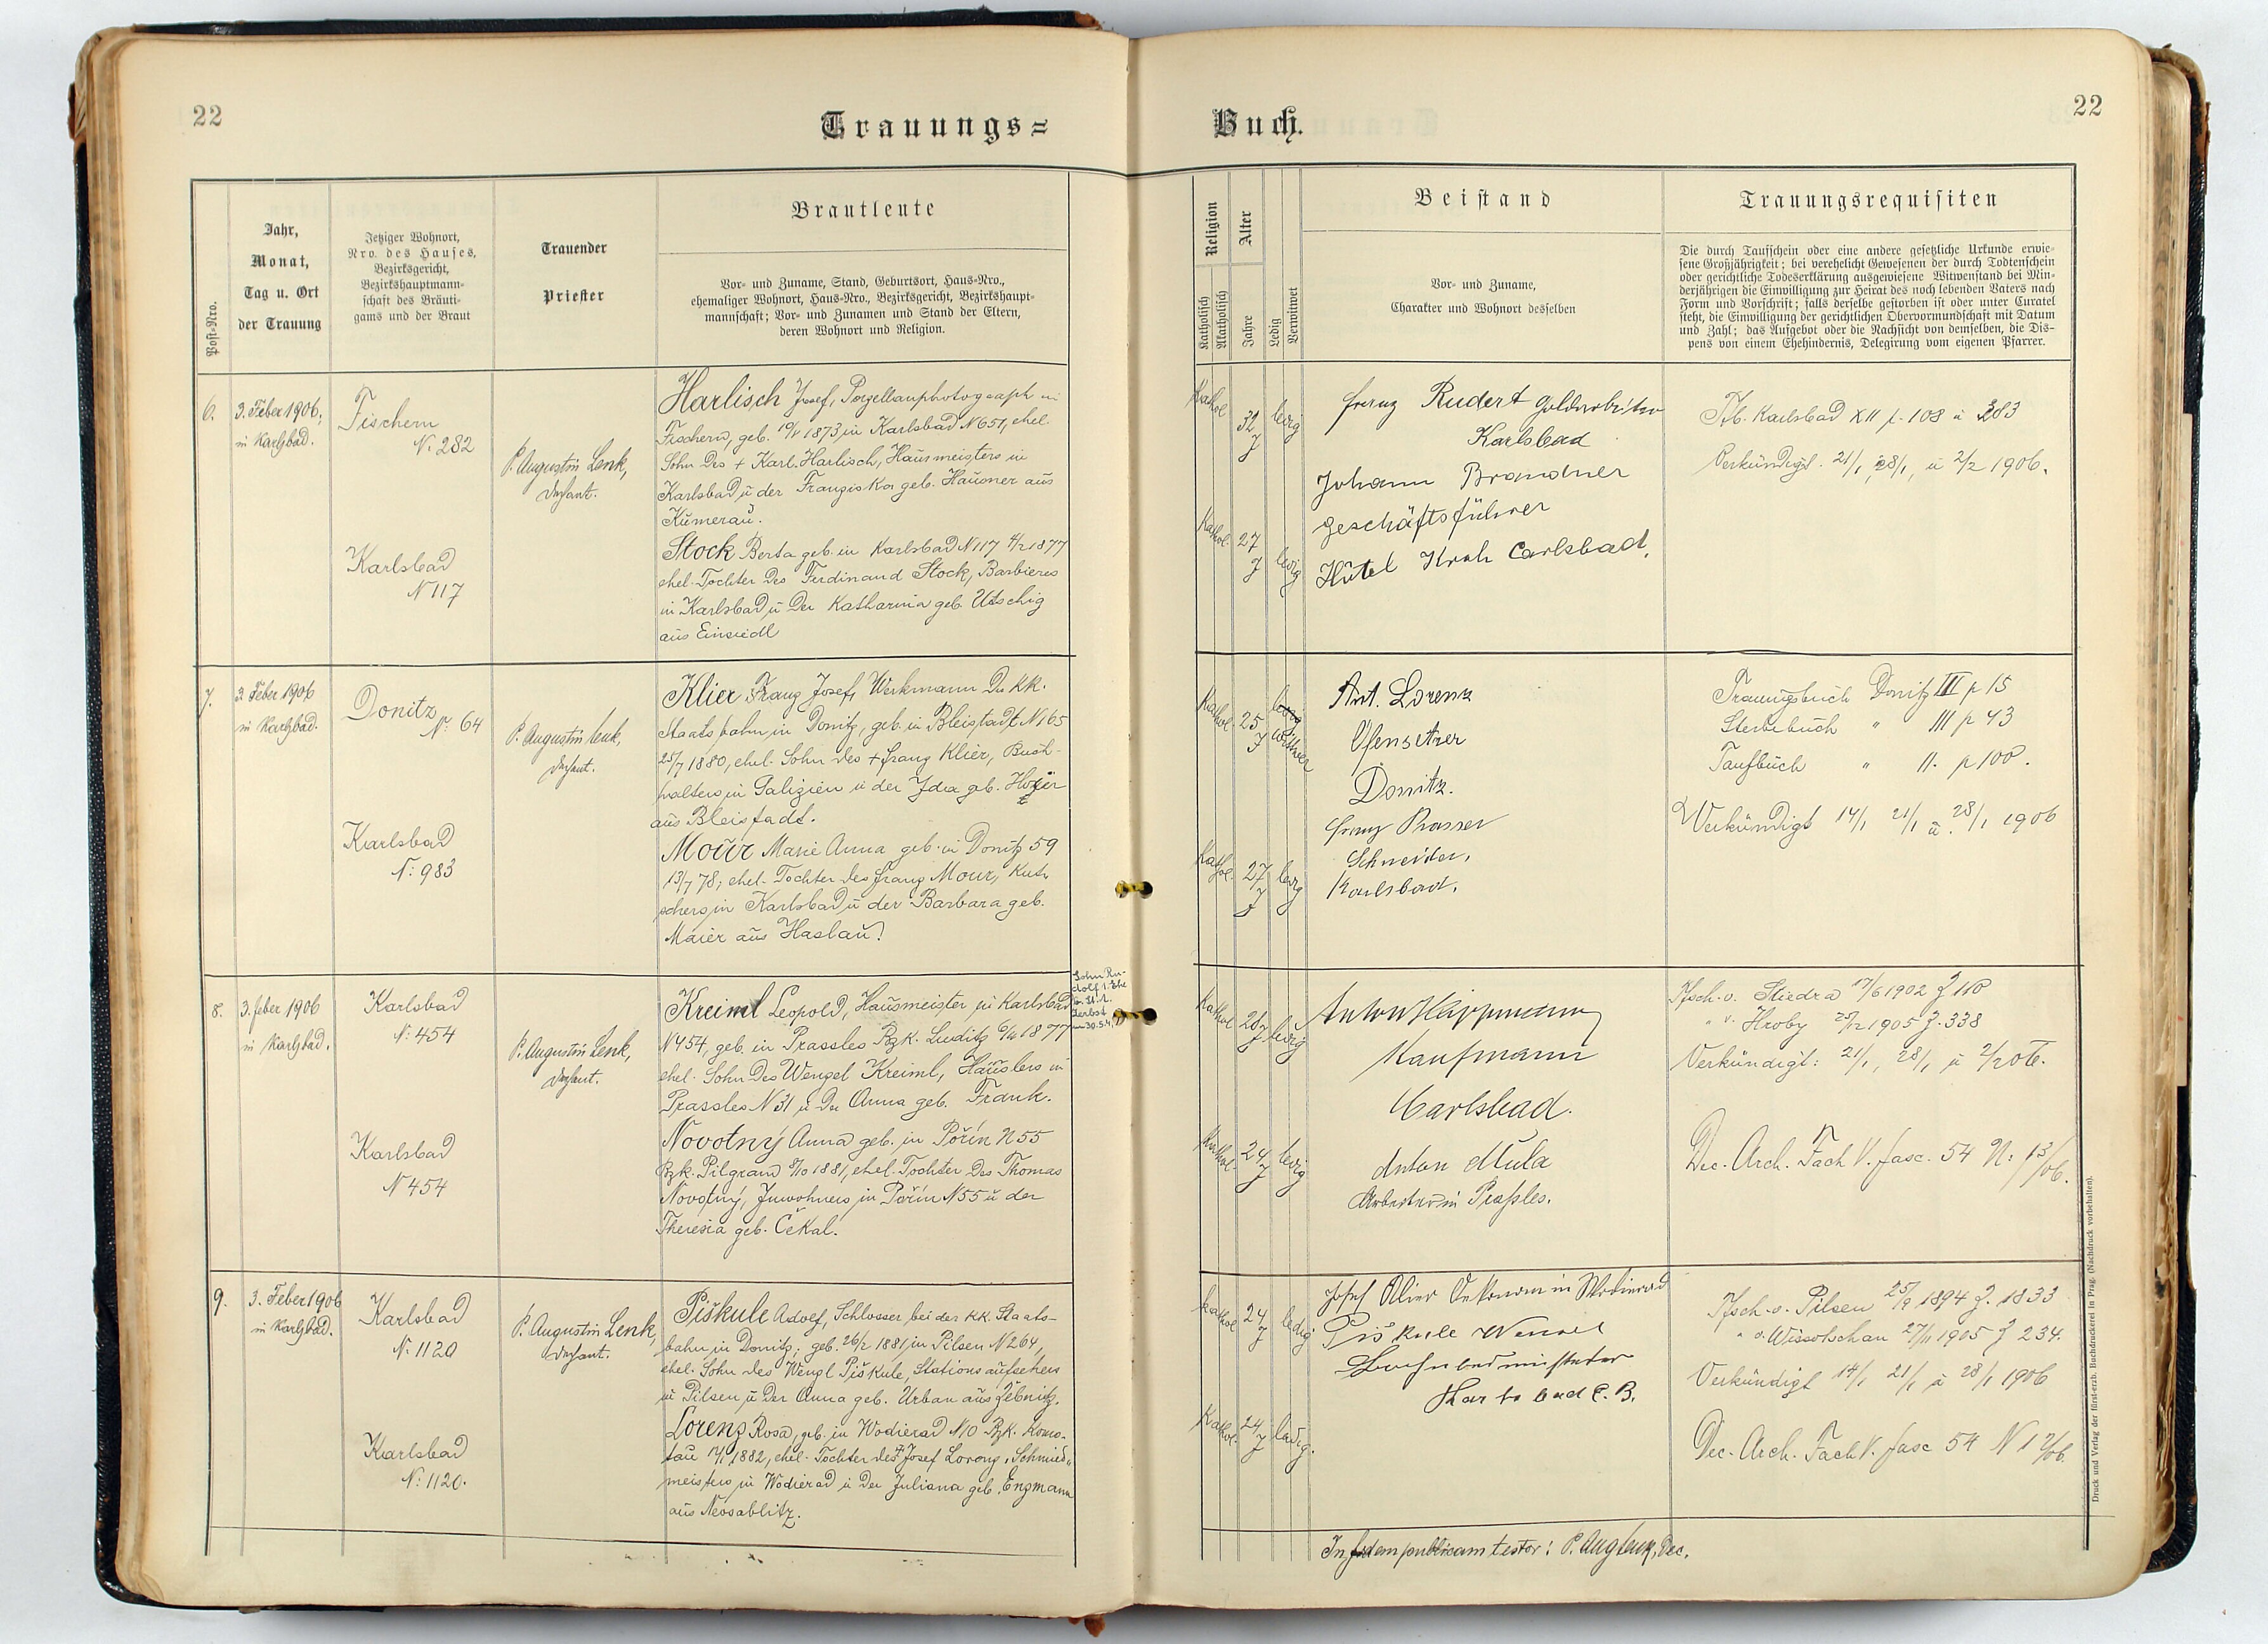 22
Trauungs=
Post-Nro.
Jahr,
Monat,
Tag u. Ort
der Trauung
Jetziger Wohnort,
Nro. des Hauses,
Bezirksgericht,
Bezirkshauptmann-
schaft des Bräuti-
gams und der Braut
Trauender
Priester
Brautleute
Vor- und Zuname, Stand, Geburtsort, Haus-Nro.,
ehemaliger Wohnort, Haus-Nro., Bezirksgericht, Bezirkshaupt-
mannschaft; Vor- und Zunamen und Stand der Eltern,
deren Wohnort und Religion.
6.
3. Feber 1906;
in Karlsbad.
Fischern
N. 282
Karlsbad
N 117
P. Augustin Lenk,
Harlisch Josef, Porzellanphotograph in
Fischern, geb. 1873 in Karlsbad N 651, ehel.
Sohn des + Karl Harlisch, Hausmeisters in
Karlsbad u der Franziska geb. Hausner aus
Kumerau.
Stock Berta geb. in Karlsbad N 117 4/2 1877
ehel. Tochter des Ferdinand Stock, Barbieres
in Karlsbad, u der Katharina geb. Utschig
aus Einsiedl
7.
3. Feber 1906
in Karlsbad.
Donitz
N. 64
Karlsbad
N: 983
P. Augustin Lenk,
Klier Franz Josef, Werkmann der KK.
Staatsbahn in Donitz, geb. in Bleistadt N 165
25/7 1880, ehel. Sohn des + Franz Klier, Buch-
halters in Galizien u der Ida geb.
aus Bleistadt.
Mour Marie Anna geb. in Donitz 59
13/7 78; ehel. Tochter des Franz Mour, Kut-
schers in Karlsbad u der Barbara geb.
Maier aus Haslau.
8.
3. Feber 1906
in Karlsbad.
Karlsbad
N: 454
Karlsbad
N 454
P. Augustin Lenk,
Kreiml Leopold, Hausmeister in Karlsbad
N 454, geb. in Prassles Bzk. Luditz 1877
ehel. Sohn des Wenzel Kreiml, Häuslers in
Prassles N 31 u der Anna geb. Frank.
Novotný Anna geb. in Pořín N 55
Bzk. Pilgram 1881, ehel. Tochter des Thomas
Novotný, Inwohners in Pořín N 55 u der
Theresia geb. Čekal.
Sohn Ru-
dolf
30.5.
9.
3. Feber 1906
in Karlsbad.
Karlsbad
N: 1120
Karlsbad
N: 1120.
P. Augustin Lenk,
Piškule Adolf, Schlosser bei der KK. Staats-
bahn in Donitz; geb. 26/2 1881 in Pilsen N 264,
ehel. Sohn des Wenzl Piškule, Stationsaufsehers
in Pilsen u der Anna geb. Urban aus Žebnitz.
Lorenz Rosa, geb. in Wodierad N 10 Bzk. Komo-
tau 1882, ehel. Tochter des Josef Lorenz, Schmied-
meisters in Wodierad u der Juliana geb. Enzmann
aus Neosablitz.
Buch.
22
Religion
Katholisch
Akatholisch
Alter
Jahre
Ledig
Verwitwet
Beistand
Vor- und Zuname,
Charakter und Wohnort desselben
Trauungsrequisiten
Die durch Taufschein oder eine andere gesetzliche Urkunde erwie-
sene Großjährigkeit; bei verehelicht Gewesenen der durch Todtenschein
oder gerichtliche Todeserklärung ausgewiesene Witwenstand bei Min-
derjährigen die Einwilligung zur Heirat des noch lebenden Vaters nach
Form und Vorschrift; falls derselbe gestorben ist oder unter Curatel
steht, die Einwilligung der gerichtlichen Obervormundschaft mit Datum
und Zahl; das Aufgebot oder die Nachsicht von demselben, die Dis-
pens von einem Ehehindernis, Delegirung vom eigenen Pfarrer.
Kathol
32
J
ledig
Kathol.
27
J
ledig
Franz Rudert Goldarbeiter
Karlsbad
Johann Brandner
Geschäftsführer
Hôtel Kroh Carlsbad.
Tfb. Karlsbad XII p. 108 u 283
Verkündigt. 21/1, 28/1, u 2/2 1906.
Kathol
25
J
ledig
Witwer
Kathol.
27
J
ledig
Ant. Lorenz
Ofensetzer
Donitz.
Franz Prasser
Schneider,
Karlsbad.
Trauungsbuch Donitz III p 15
Sterbebuch " III p 43
Taufbuch " II. p 100.
Verkündigt 14/1 21/1 u. 28/1 1906
Kathol
28
J
ledig
Kathol.
24
J
ledig
Anton
Kaufmann
Carlsbad.
Anton Mula
Arbeiter in Praßles.
Tfsch. v. Stiedra 17/6 1902 Z 110
" v. Hroby 1905 Z. 338
Verkündigt: 21/1, 28/1 u 2/2 06.
Dec. Arch. Fach V. fasc. 54 N: 13/06.
Kathol
24
J
ledig
Kathol.
24
J
ledig.
Josef Oekonom in Wodierad
Piškule Wenzel
Karlsbad C. B.
Tfsch. v. Pilsen 25/9 1894 Z. 1833
" v. Wissotschan 27/11 1905 Z 234.
Verkündigt 14/1 21/1 u 28/1 1906
Dec. Arch. Fach V. fasc 54 N 12/06.
In fidem publicam testor: P. Aug Lenk, Dec.
Druck und Verlag der fürst-erzb. Buchdruckerei in Prag. (Nachdruck vorbehalten).